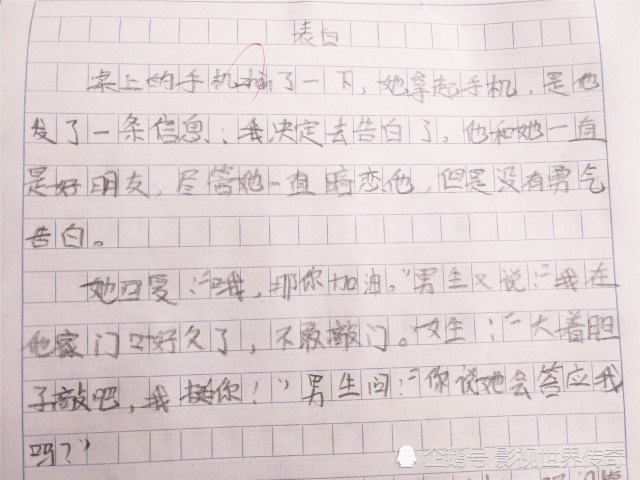 表白
桌上的手机振了一下，她拿起手机，是他
发了一条信息：我决定去告白了。他和她一直
是好朋友，尽管她一直暗恋他，但是没有勇气
告白。
她回复：“哦，那你加油。”男生又说：“我在
他家门口好久了，不敢敲门。女生：“大着胆
子敲吧，我挺你！”男生问：“你说她会答应我
吗？”
企鹅号 影视世界传奇